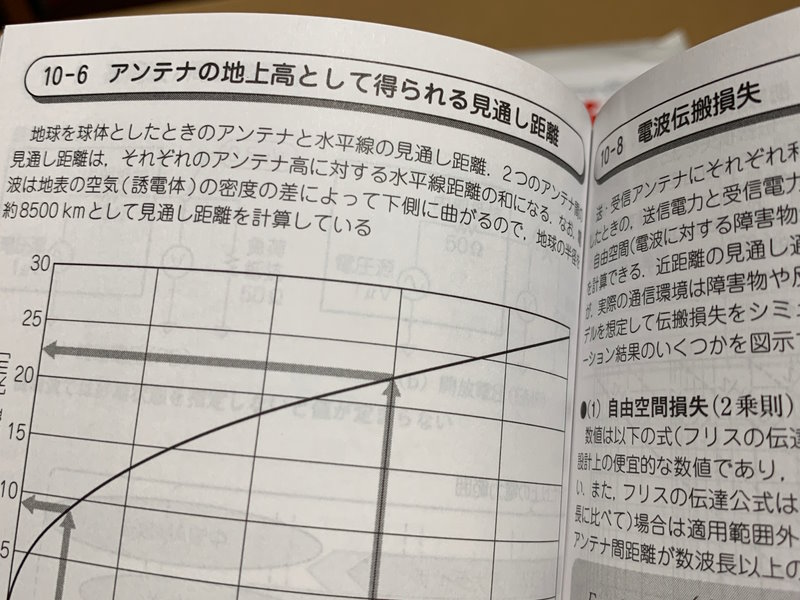 10-6 アンテナの地上高として得られる見通し距離
地球を球体としたときのアンテナと水平線の見通し距離．2つのアンテナ間の
見通し距離は，それぞれのアンテナ高に対する水平線距離の和になる．なお，電
波は地表の空気(誘電体)の密度の差によって下側に曲がるので，地球の半径を
約8500kmとして見通し距離を計算している
30
25
20
15
10
5
10-8 電波伝搬損失
送・受信アンテナにそれぞれ利
したときの，送信電力と受信電力
自由空間(電波に対する障害物
を計算できる．近距離の見通し通
が，実際の通信環境は障害物や反
デルを想定して伝搬損失をシミュ
ーション結果のいくつかを図示
●(1) 自由空間損失(2乗則)
数値は以下の式(フリスの伝達
設計上の便宜的な数値であり，
い．また，フリスの伝達公式は
長に比べて)場合は適用範囲外
アンテナ間距離が数波長以上の